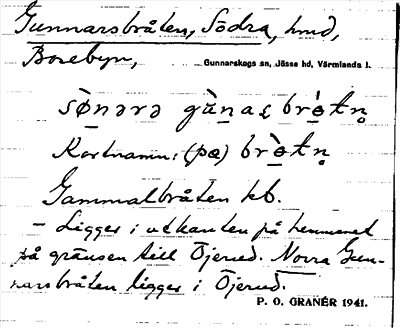 Gunnarsbråten, Södra, hmd,
Borebyn, Gunnarskogs sn, Jösse hd, Värmlands l.
sø̀nərə gùnas brò̠tn̥
Kortnamn: (pæ) brò̠tn̥
Gammalbråten kb.
– Ligger i utkanten på hemmanet
på gränsen till Öjerud. Norra Gun-
narsbråten ligger i Öjerud.
P. O. GRANÉR 1941.